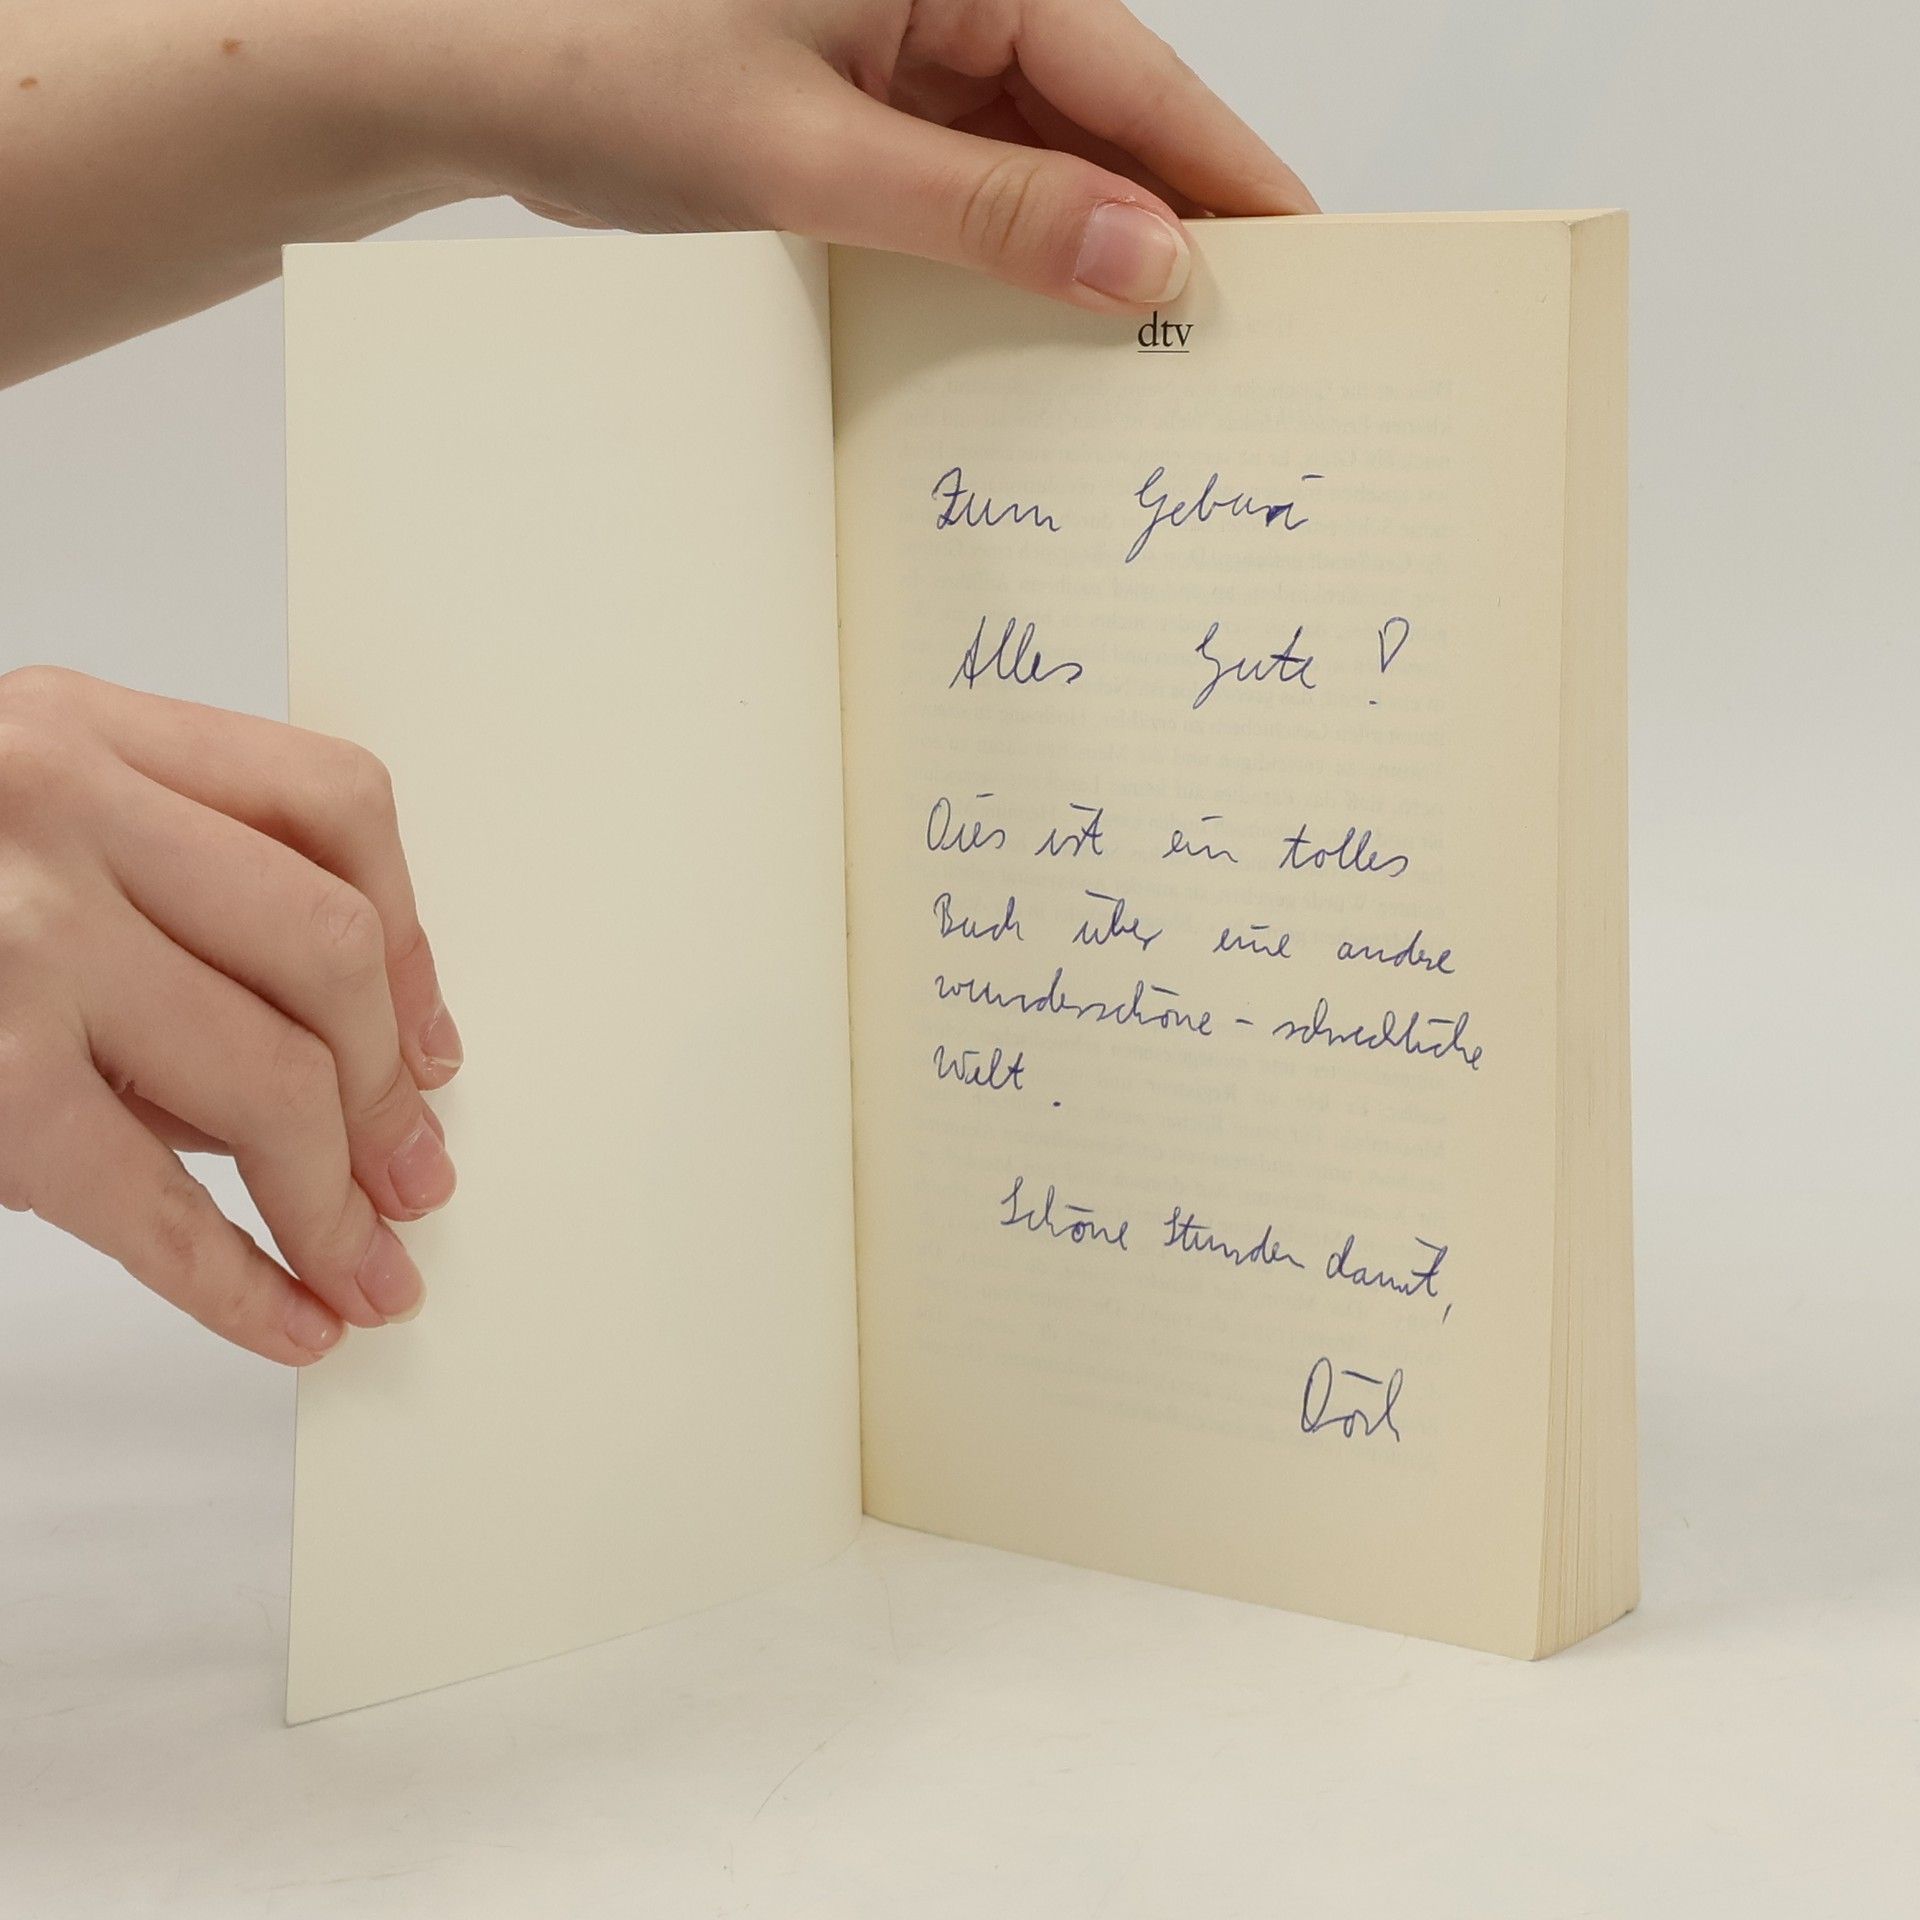 dtv
Zum Geburi
Alles Gute!
Dies ist ein tolles
Buch über eine andre
wunderschöne - schreckliche
Welt.
Schöne Stunden damit,